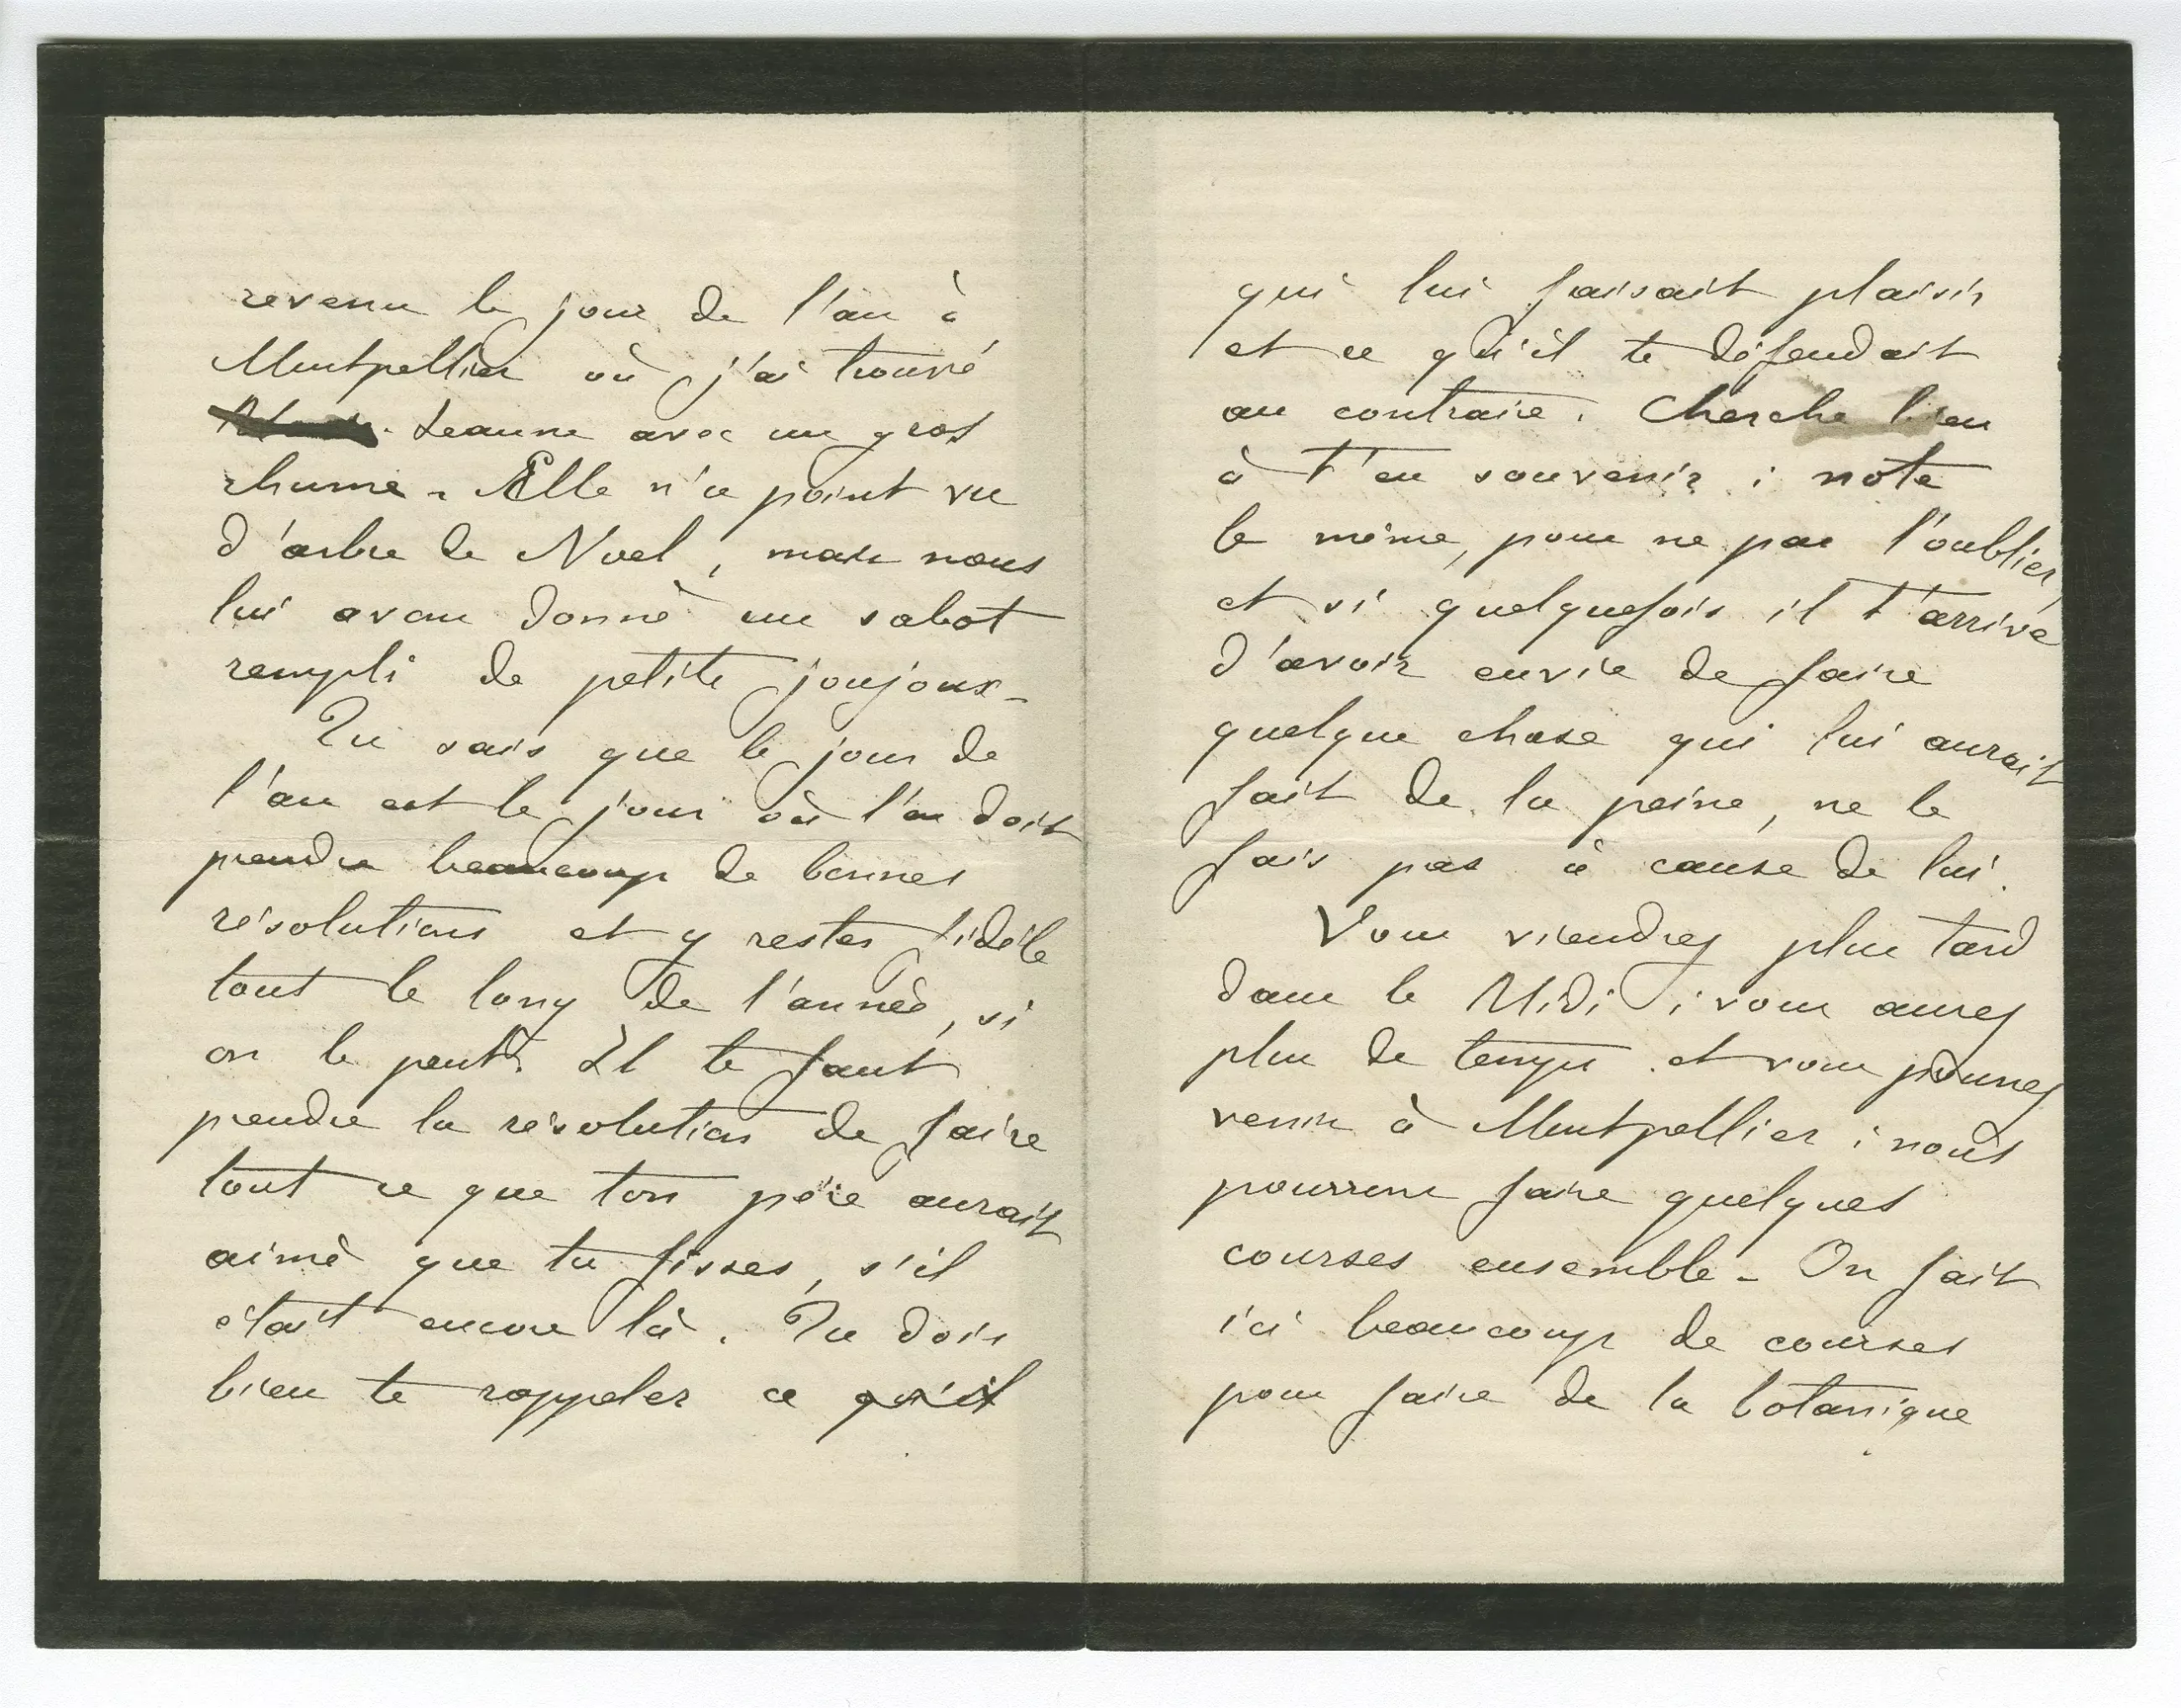 revenu le jour de l'an à
Montpellier où j'ai trouvé
Jeanne avec un gros
rhume - Elle n'a point vu
d'arbre de Noel, mais nous
lui avons donné un sabot
rempli de petits joujoux -
Tu sais que le jour de
l'an est le jour où l'on doit
prendre beaucoup de bonnes
résolutions et y rester fidèle
tout le long de l'année, si
on le peut. Il te faut
prendre la résolution de faire
tout ce que ton père aurait
aimé que tu fisses, s'il
était encore là. Tu dois
bien te rappeler ce qu'il
qui lui faisait plaisir
et ce qu'il te défendait
au contraire. Cherche bien
à t'en souvenir ; note
le même, pour ne pas l'oublier,
et si quelquefois il t'arrive
d'avoir envie de faire
quelque chose qui lui aurait
fait de la peine, ne le
fais pas à cause de lui.
Vous viendrez plus tard
dans le Midi ; vous aurez
plus de temps et vous pourrez
venir à Montpellier ; nous
pourrons faire quelques
courses ensemble - On fait
ici beaucoup de courses
pour faire de la botanique